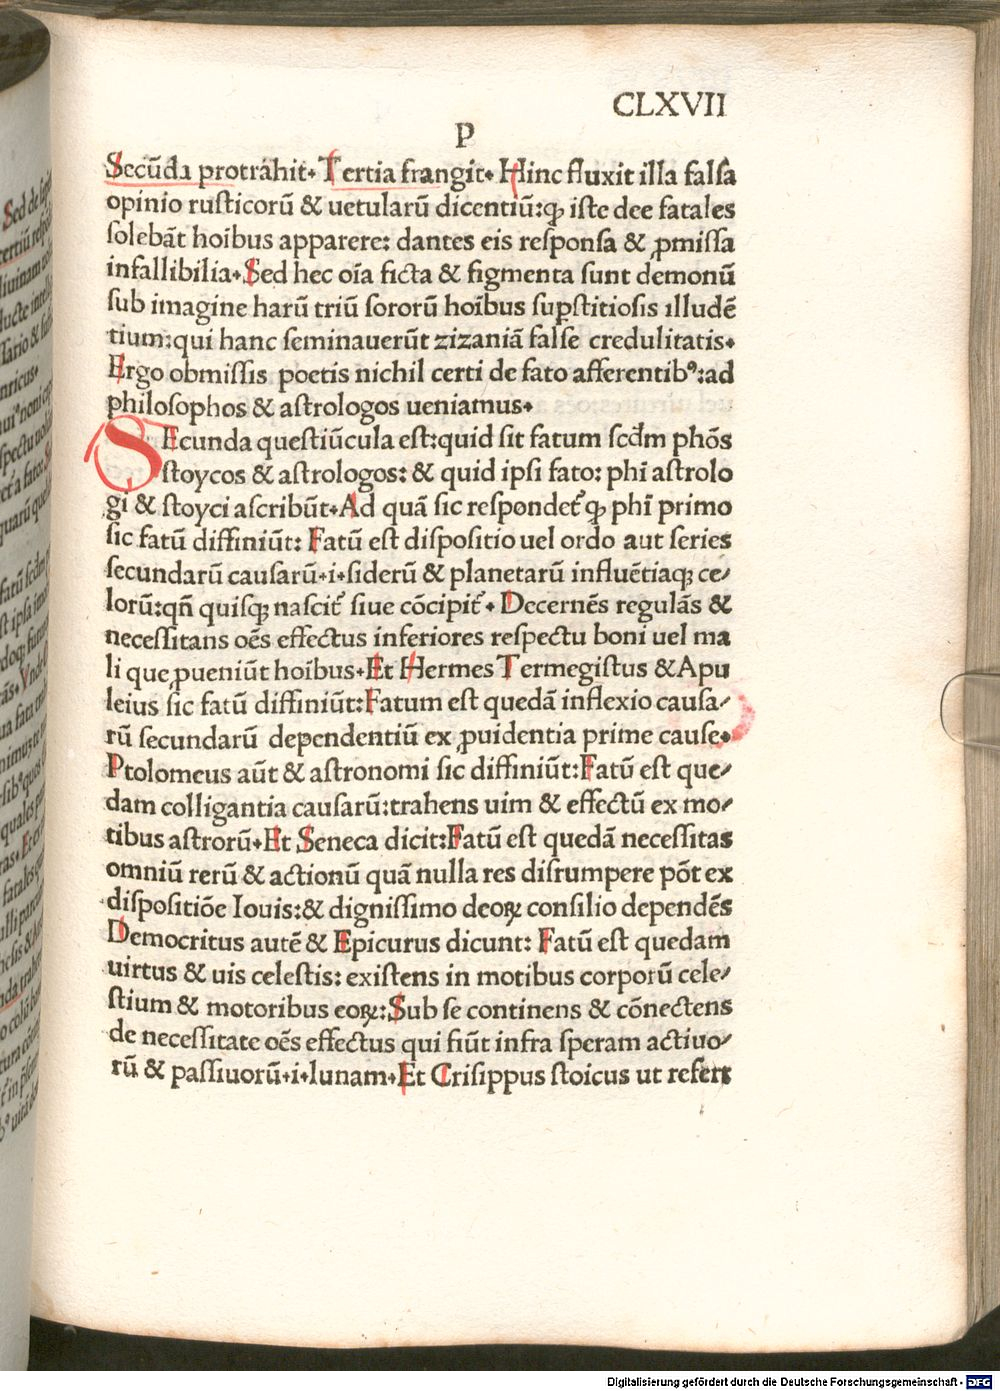 CLXVII
P
Secūda protrahit. Tertia frangit. Hinc fluxit illa falſa
opinio ruſticorū & uetularū dicentiū:ꝙ iſte dee fatales
ſolebāt hoībus apparere: dantes eis reſponſa & ꝓmiſſa
infallibilia. Sed hec oīa ficta & figmenta ſunt demonū
ſub imagine harū triū ſororū hoībus ſupſtitioſis illudē
tium:qui hanc ſeminauerūt zizaniā falſe credulitatis.
Ergo obmiſſis poetis nichil certi de fato afferentibꝰ:ad
philoſophos & aſtrologos ueniamus.
SEcunda queſtiūcula eſt:quid ſit fatum ſcd̄m phōs
ſtoycos & aſtrologos: & quid ipſi fato: phī aſtrolo
gi & ſtoyci aſcribūt. Ad quā ſic reſpondet᷑ ꝙ phī primo
ſic fatū diffiniūt: Fatū eſt diſpoſitio uel ordo aut ſeries
ſecundarū cauſarū.i.ſiderū & planetarū influētiaqꝫ ce⸗
lorū:qn̄ quiſqꝫ naſcit᷑ ſiue cōcipit᷑. Decernēs regulās &
neceſſitans oēs effectus inferiores reſpectu boni uel ma
li que ꝓueniūt hoībus. Et Hermes Termegiſtus & Apu
leius ſic fatū diffiniūt:Fatum eſt quedā inflexio cauſa⸗
rū ſecundarū dependentiū ex ꝓuidentia prime cauſe.
Ptolomeus aūt & aſtronomi ſic diffiniūt:Fatū eſt que⸗
dam colligantia cauſarū:trahens uim & effectū ex mo⸗
tibus aſtrorū. Et Seneca dicit:Fatū eſt quedā neceſſitas
omniū rerū & actionū quā nulla res diſrumpere pōt ex
diſpoſitiōe Iouis:& digniſſimo deoꝝ conſilio dependēs
Democritus autē & Epicurus dicunt: Fatū eſt quedam
uirtus & uis celeſtis: exiſtens in motibus corporū cele⸗
ſtium & motoribus eoꝝ:Sub ſe continens & cōnectens
de neceſſitate oēs effectus qui fiūt infra ſperam actiuo⸗
rū & paſſiuorū.i.lunam. Et Criſippus ſtoicus ut refert
Digitalisierung gefördert durch die Deutsche Forschungsgemeinschaft - DFG